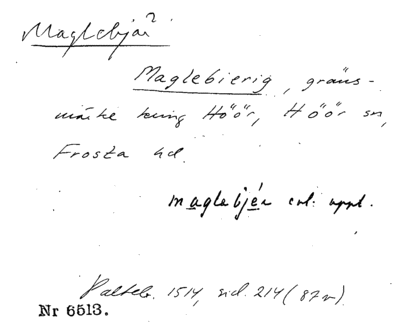 Maglebjär?
Maglebierig, gräns-
märke kring Höör, Höör sn,
Frosta hd.
maglebjér enl. uppt.
Palteb. 1514, sid. 214 (87v).
Nr 6513.